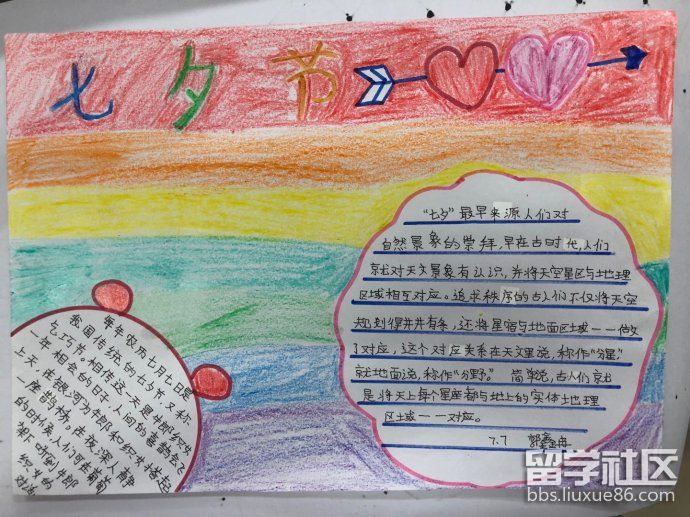 七夕节
“七夕”最早来源人们对
自然景象的崇拜,早在古时代,人们
就对天文景象有认识,并将天空星区与地理
区域相互对应。追求秩序的古人们不仅将天空
规划得井井有条,还将星宿与地面区域一一做
了对应,这个对应关系在天文里说,称作“分星”
就地面说,称作“分野”。 简单说,古人们就
是将天上每个星座都与地上的实体地理
区域一一对应。
7.7
每年农历七月七日是
我国传统的七夕节又称
乞巧节,相传这一天是牛郎织女
一年相会的日子,人间的喜鹊会飞
上天,在银河为牛郎和织女搭起
一座鹊桥。在夜深人静
的时候,人们可在葡萄
架下听到牛郎
织女的
对话
留学社区
bbs.liuxue86.com